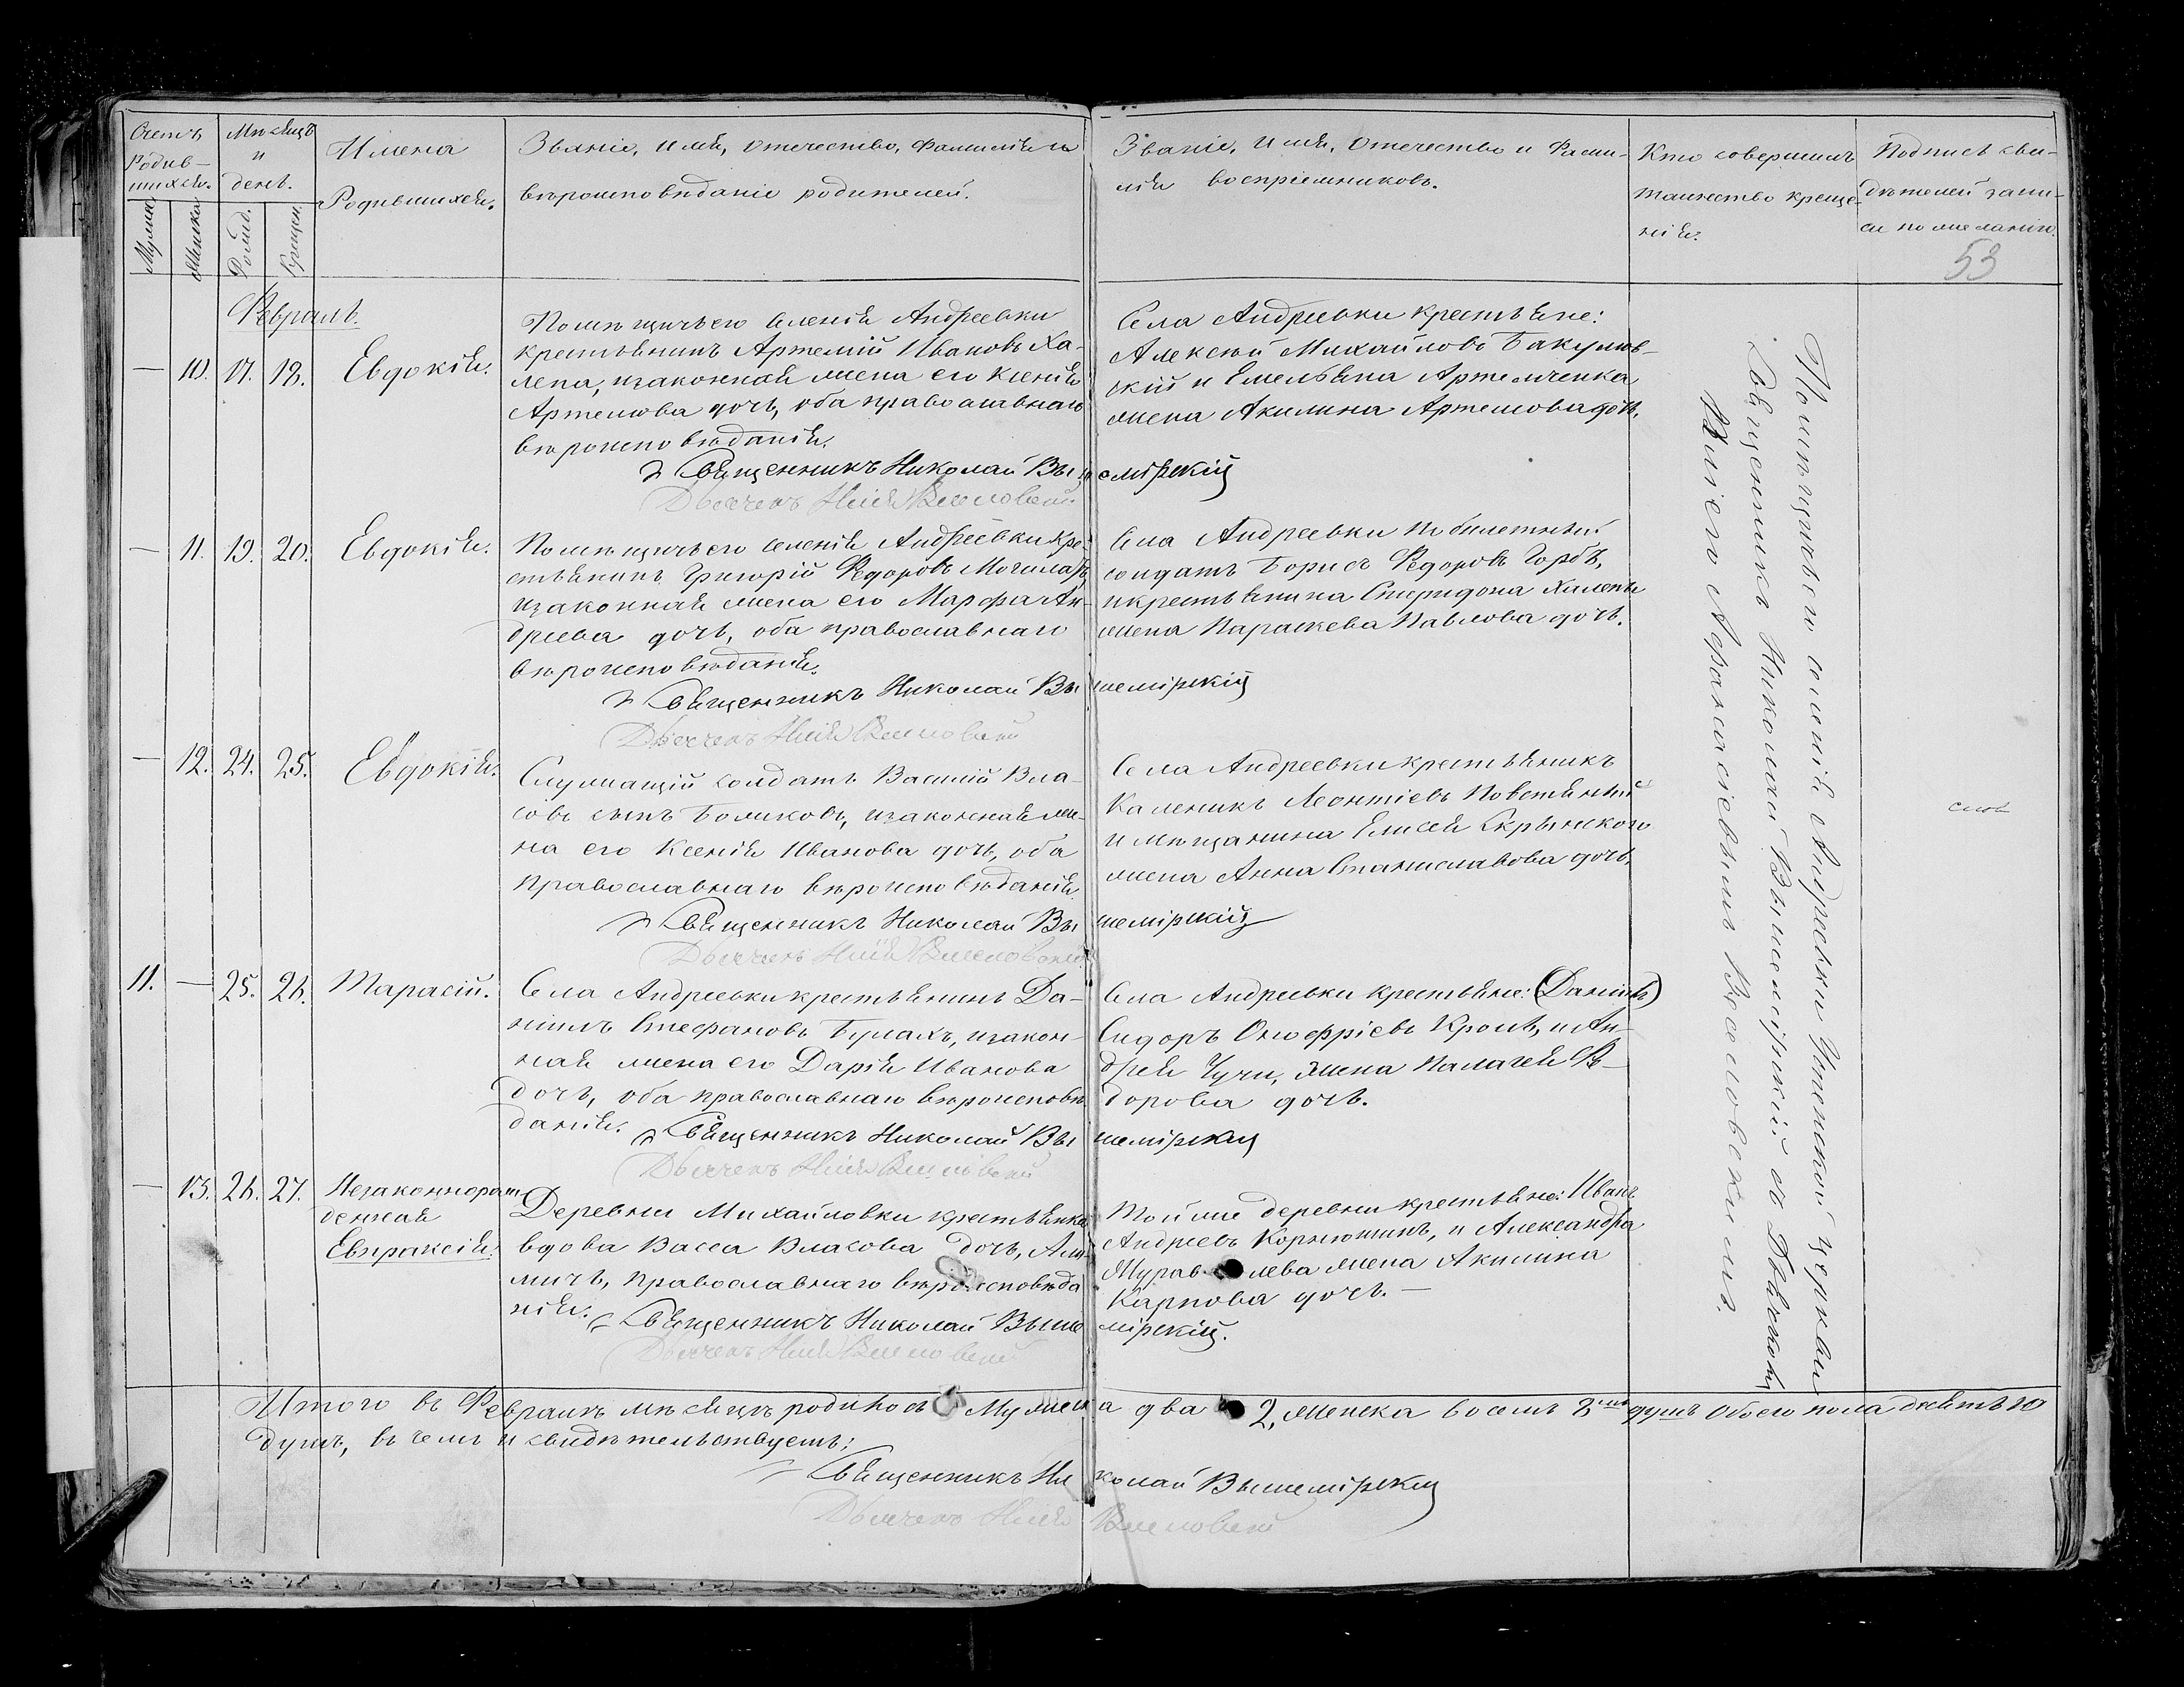 Счетъ
Родив-
шихся.
Мѣсяцъ
и
день.
Имена
Родившихся.
Званіе, имя, отчество, фамилія и
вѣроисповѣданіе родителей.
Званіе, имя, отчество и фами-
лія воспріемниковъ.
Кто совершилъ
таинство креще-
нія.
Подпись сви-
дѣтелей запи-
си по желанію.
Муж.
Женска
Рожд.
Крещен.
53
Февраль.
— 10. 17. 18. Евдокія.
Помѣщичьего селенія Андреевки
крестьянинъ Артемій Ивановъ Ха-
лепа, изаконная жена его Ксенія
Артемова дочь, оба православнаго
вѣроисповѣданія.
Села Андреевки крестьяне:
Алексѣй Михайловъ Бакумов-
скій и Емельяна Артемченка
жена Акилина Артемова дочь.
Священникъ Николай Вышемірскій
Дьячекъ
— 11. 19. 20. Евдокія.
Помѣщичьего селенія Андреевки кре-
стьянинъ Григорій Федоровъ Могиларь,
изаконная жена его Марфа Ан-
дреева дочь, оба православнаго
вѣроисповѣданія.
Села Андреевки
солдатъ Борисъ Федоровъ Горбъ,
икрестьянина Спиридона Халепы
жена Параскева Павлова дочь.
Священникъ Николай Вышемірскій
Дьячекъ
— 12. 24. 25. Евдокія.
Служащій солдатъ Василій Вла-
совъ сынъ Божковъ, изаконная же-
на его Ксенія Иванова дочь, оба
православнаго вѣроисповѣданія
Села Андреевки крестьяникъ
Каленикъ Леонтіевъ Повстяный
и мѣщанина Елисея Скрынскаго
жена Анна Станиславова дочь.
Священникъ Николай Вышемірскій
Дьячекъ
11. — 25. 26. Тарасій.
Села Андреевки крестьянинъ Да-
ніилъ Стефановъ Булахъ, изакон-
ная жена его Дарія Иванова
дочь, оба православнаго вѣроисповѣ-
данія.
Села Андреевки крестьяне: (Даніилъ)
Сидоръ Онофріевъ Кроль, и Ан-
дрея Чучи, жена Палагея Фе-
дорова дочь.
Священникъ Николай Вышемірскій
Дьячекъ
— 13. 26. 27. Незаконнорож-
денная
Евпраксія.
Деревни Михайловки крестьянка
вдова Васса Власова дочь,
православнаго вѣроисповѣда
нія.
Той же деревни крестьяне: Иванъ
Андреевъ Корнюшинъ, и Александра
Муравлева жена Акилина
Карпова дочь. —
Священникъ Николай Вышемірскій.
Дьячекъ
Помѣщичьего селенія Андреевки Успенской церкви
Священникъ Николай Вышемірскій съ Дьячкомъ
Иліею Афанасіевымъ
Итого въ Февралѣ мѣсяцѣ родилось Мужеска два 2, женска восемь 8, душъ обоего пола десять 10
душъ, въ чемъ и свидѣтельствуемъ:
Священникъ Николай Вышемірскій
Дьячекъ